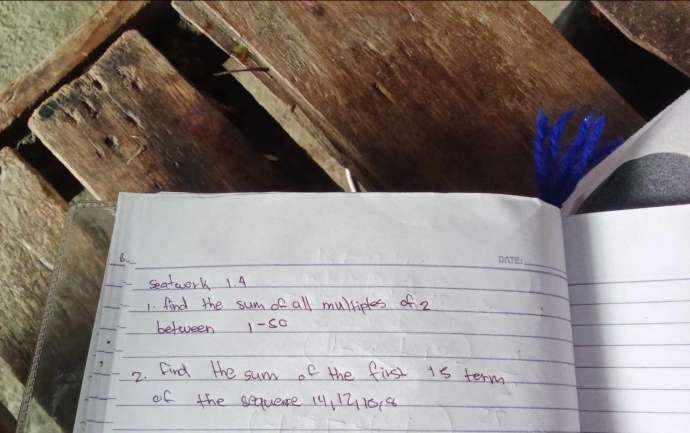 DATE:
seatwork 1.4
1. find the sum of all multiples of 2
between 1-50
2. find the sum of the first 15 term
of the sequence 14,12,10,8